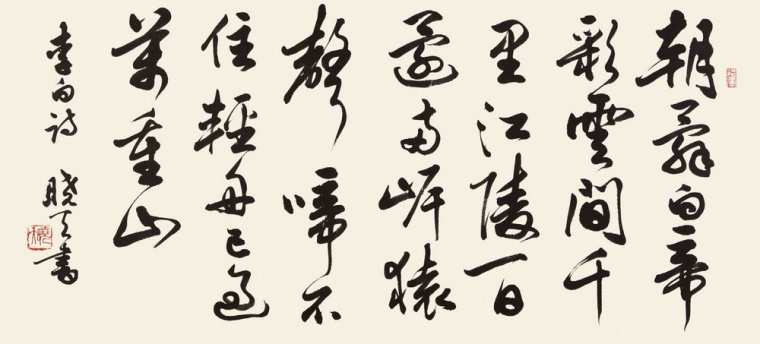 朝辭白帝
彩雲間千
里江陵一日
還两岸猿
聲啼不
住輕舟已過
萬重山
李白诗 晓天書